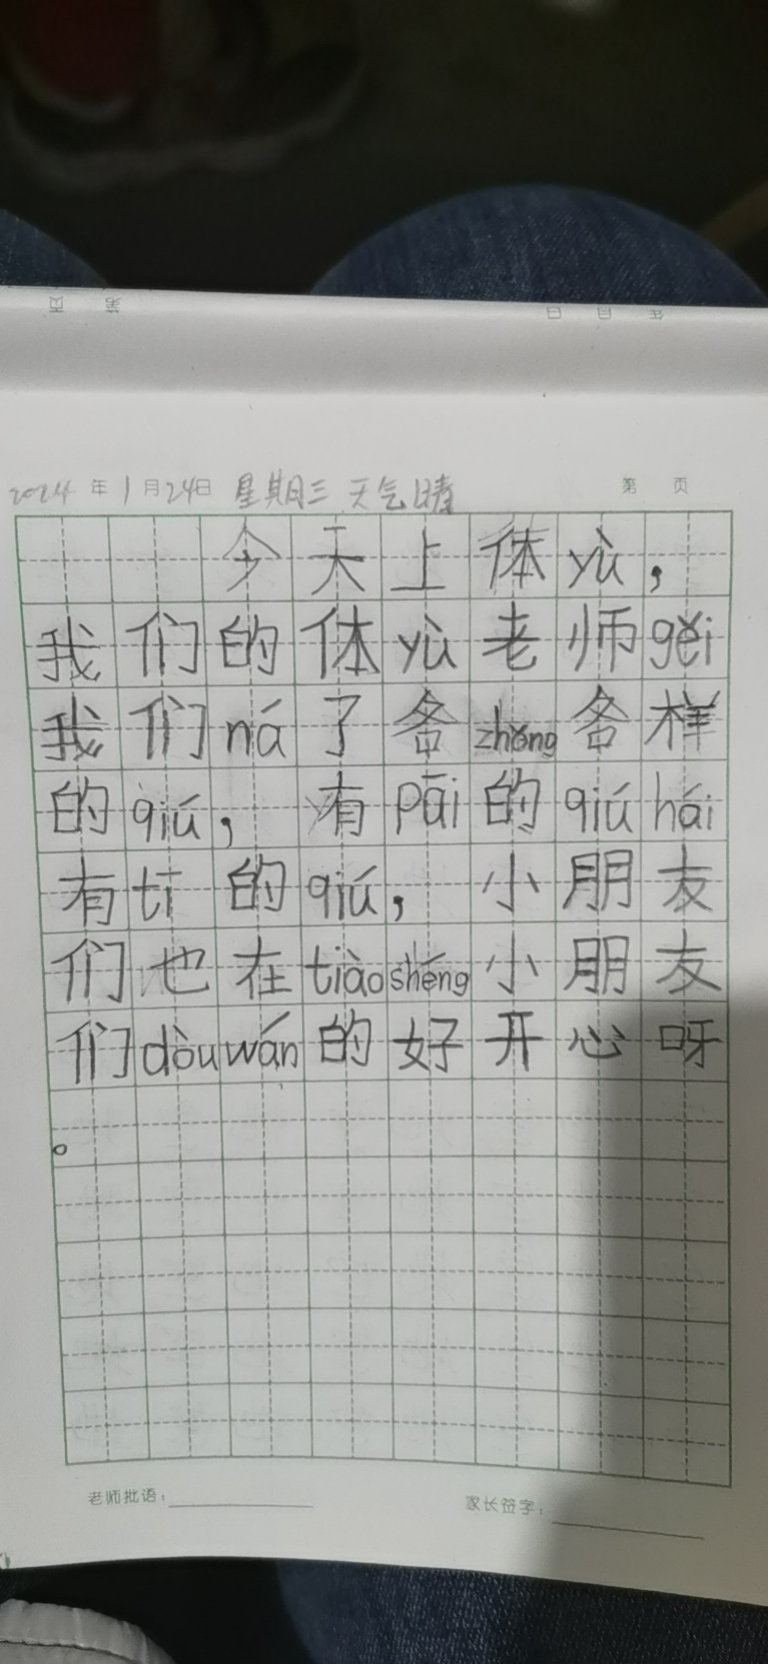 第 页 年 月 日
2024 年 1 月 24日 星期三 天气晴 第 页
今天上体yù，
我们的体yù老师gěi
我们ná了各zhǒng各样
的qiú，有pāi的qiú hái
有tī的qiú，小朋友
们也在tiào shéng小朋友
们dòu wán的好开心呀
。
老师批语： 家长签字：